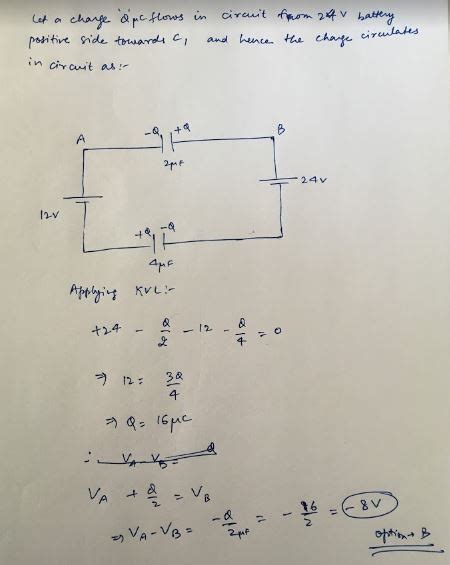 Let a charge 'Q' μC flows in circuit from 24 V battery
positive side towards C₁, and hence the charge circulates
in circuit as :-
A
-Q
+Q
B
2μF
12V
24V
+Q
-Q
4μF
Applying KVL:-
+24 - Q/2 - 12 - Q/4 = 0
⇒ 12 = 3Q/4
⇒ Q = 16 μC
∴ V_A V_B = Q
V_A + Q/2 = V_B
⇒ V_A - V_B = -Q/2μF = -16/2 = -8V
option → B